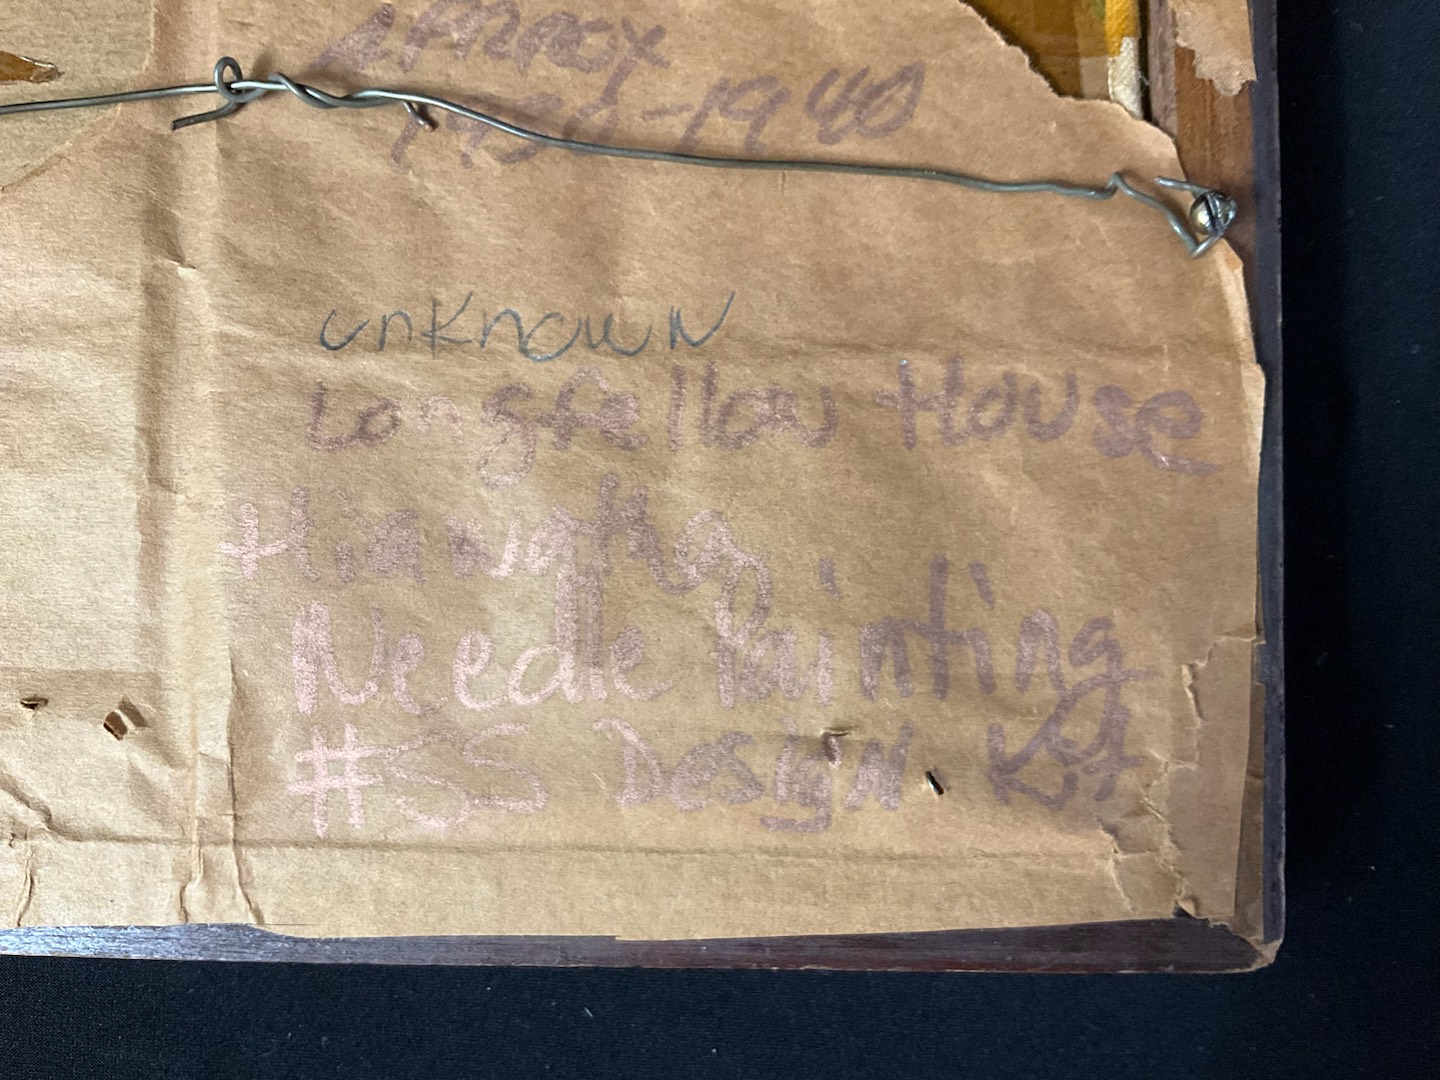 Approx
1930-1940
unknown
Longfellow House
Hiawatha
Needle Painting
#SS Design Kit